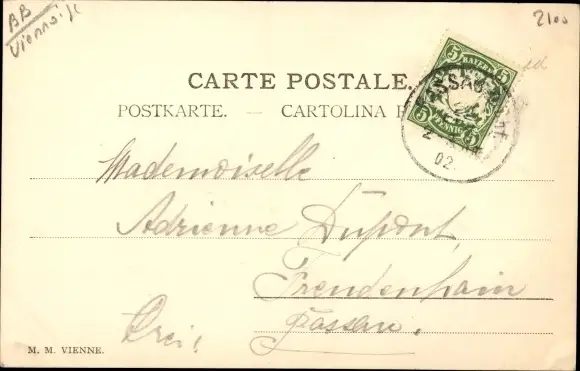 BB
Viennoise
2100
CARTE POSTALE.
POSTKARTE. — CARTOLINA P
5 BAYERN 5
5 PFENNIG 5
PASSAU
02
Mademoiselle
Adrienne Dupont,
Freudenhain
Passau.
M. M. VIENNE.